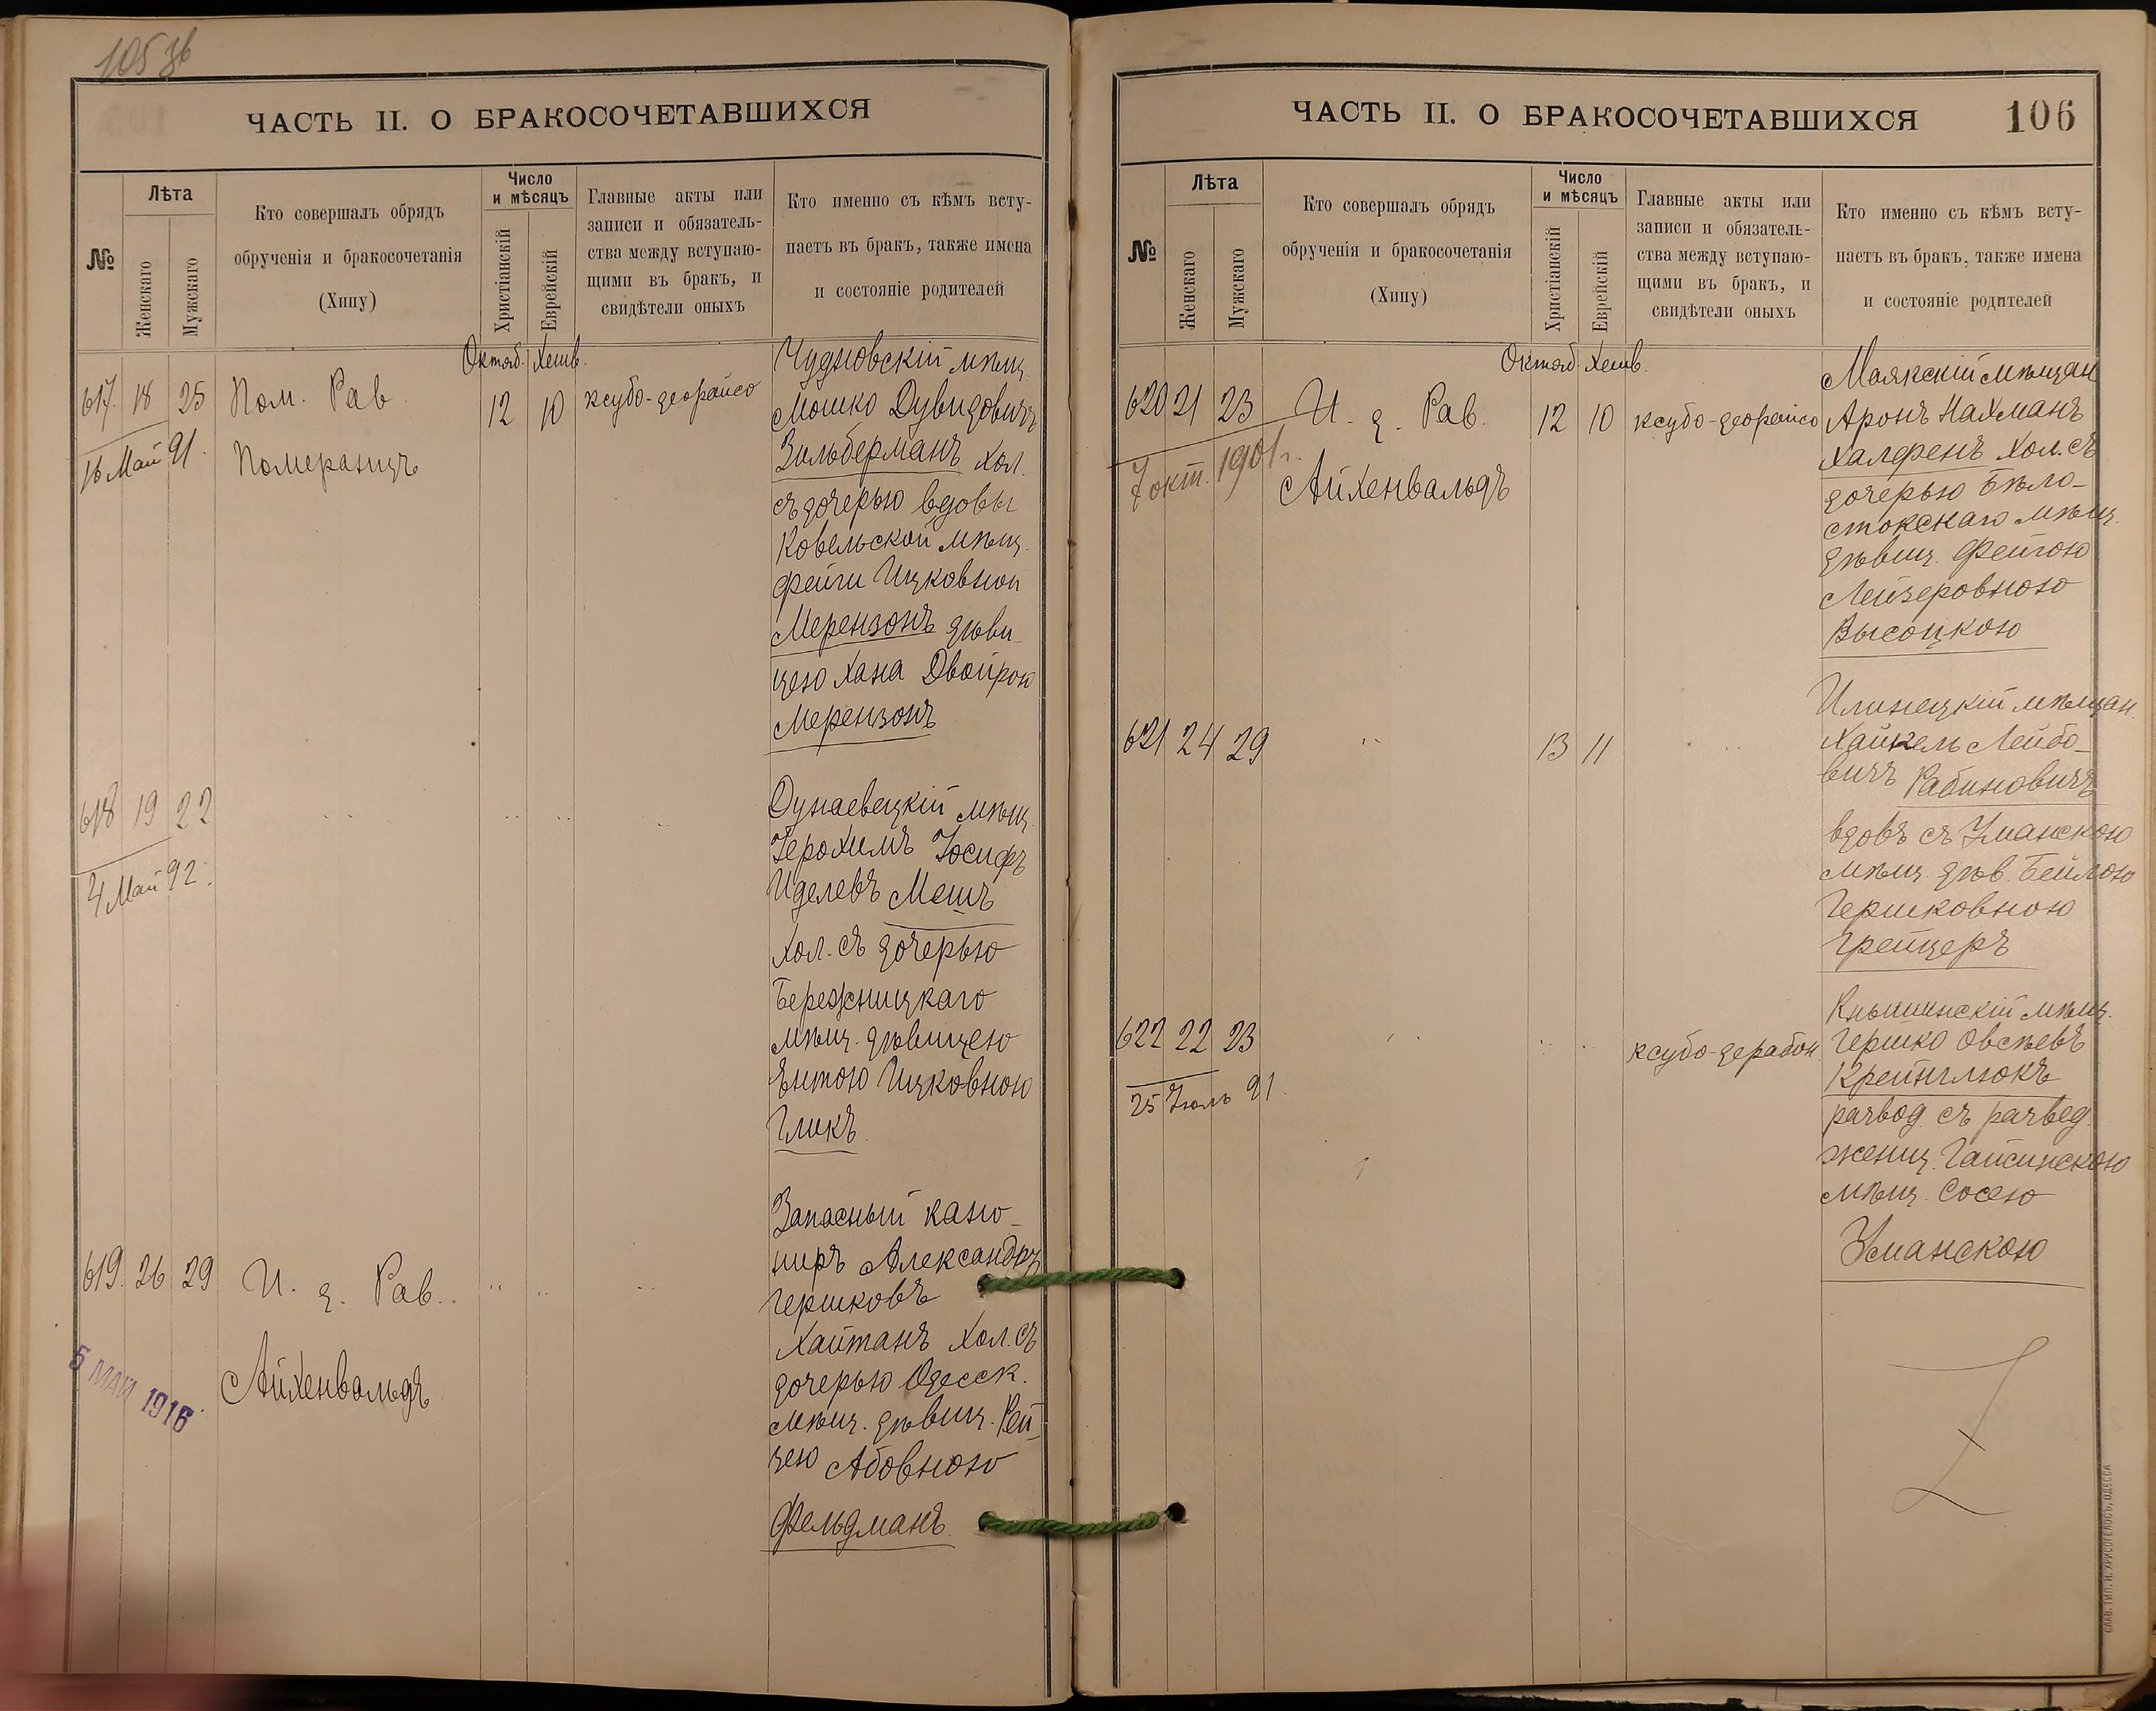 105 зв
ЧАСТЬ II. О БРАКОСОЧЕТАВШИХСЯ
№
Лѣта
Женскаго
Мужскаго
Кто совершалъ обрядъ
обрученія и бракосочетанія
(Хипу)
Число
и мѣсяцъ
Христіанскій
Еврейскій
Главные акты или
записи и обязатель-
ства между вступаю-
щими въ бракъ, и
свидѣтели оныхъ
Кто именно съ кѣмъ всту-
паетъ въ бракъ, также имена
и состояніе родителей
Октяб. Хешв.
617. 18 25 Пом. Рав. 12 10 ксубо-деорайсо
16 Май 91. Померанцъ
Чудновскій мѣщ.
Мошко Дувидовичъ
Зильберманъ хол.
съ дочерью вдовы
Ковельской мѣщ.
Фейги Ицковной
Мерензонъ дѣви-
цею Хана Двойрою
Мерензонъ
618 19 22 .. .. .. ..
4 Май 92.
Дунаевецкій мѣщ.
Іерохимъ Іосифъ
Иделевъ Мешъ
хол. съ дочерью
Бережницкаго
мѣщ. дѣвицею
Ентою Ицковною
Гликъ
619. 26 29 И. д. Рав. .. .. ..
Айхенвальдъ
5 МАЙ 1916
Запасный кано-
ниръ Александръ
Гершковъ
Хайтанъ хол. съ
дочерью Одесск.
мѣщ. дѣвиц. Рей-
зею Абовною
Фельдманъ.
ЧАСТЬ II. О БРАКОСОЧЕТАВШИХСЯ 106
№
Лѣта
Женскаго
Мужскаго
Кто совершалъ обрядъ
обрученія и бракосочетанія
(Хипу)
Число
и мѣсяцъ
Христіанскій
Еврейскій
Главные акты или
записи и обязатель-
ства между вступаю-
щими въ бракъ, и
свидѣтели оныхъ
Кто именно съ кѣмъ всту-
паетъ въ бракъ, также имена
и состояніе родителей
Октяб. Хешв.
620 21 23 И. д. Рав. 12 10 ксубо-деорайсо
7 окт. 1901 г. Айхенвальдъ
Маякскій мѣщан
Аронъ Нахманъ
Халфенъ хол. съ
дочерью Бѣло-
стокскаго мѣщ.
дѣвиц. Фейгою
Лейзеровною
Высоцкою
621 24 29 .. 13 11 ..
Илинецкій мѣщан.
Хайкель Лейбо-
вичъ Рабиновичъ
вдовъ съ Уманскою
мѣщ. дѣв. Бейлою
Гершковною
Грейцеръ
622 22 23 .. .. .. ксубо-дерабон.
25 Іюль 91.
Кнышинскій мѣщ.
Гершко Овсѣевъ
Крейнглюкъ
развод. съ развед.
женщ. Гайсинскою
мѣщ. Сосею
Уманскою
СЛАВ. ТИП. Н. ХРИСОГЕЛОСЪ, ОДЕССА